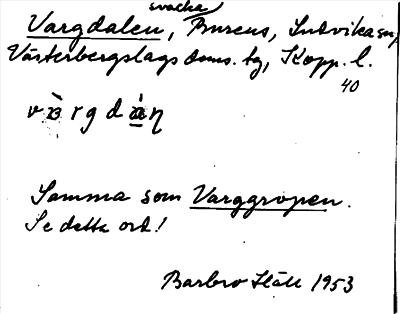 svacka
Vargdalen, Burens, Ludvika sn,
Västerbergslags doms. tg, Kopp. l.
40
Samma som Varggropen.
Se detta ord!
Barbro Häll 1953